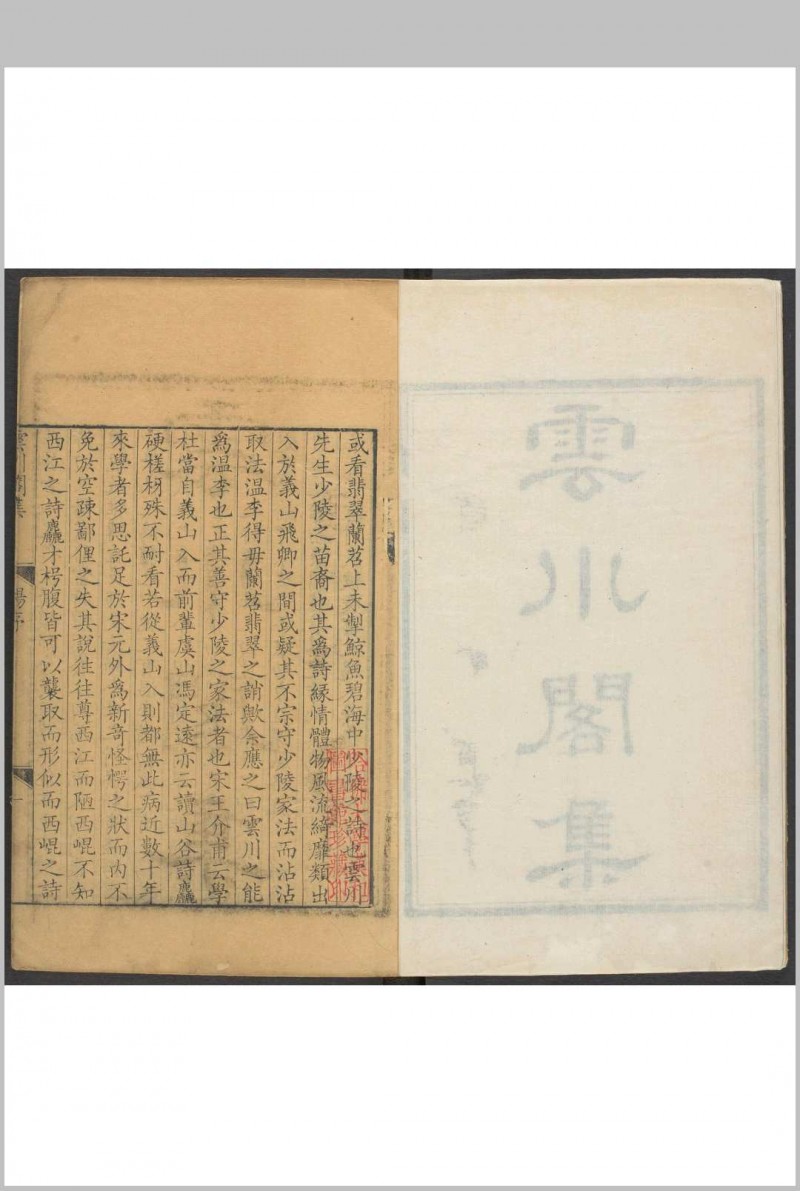 雲川閣集
或看翡翠蘭苕上未掣鯨魚碧海中少陵之詩也雲川
先生少陵之苗裔也其爲詩緣情體物風流綺靡類出
入於義山飛卿之間或疑其不宗守少陵家法而沾沾
取法溫李得毋蘭苕翡翠之誚歟余應之曰雲川之能
爲溫李也正其善守少陵之家法者也宋王介甫云學
杜當自義山入而前輩虞山馮定遠亦云讀山谷詩麤
硬槎枒殊不耐看若從義山入則都無此病近數十年
來學者多思託足於宋元外爲新奇怪愕之狀而内不
免於空疎鄙俚之失其說往往尊西江而陋西崐不知
西江之詩麤才枵腹皆可以襲取而形似而西崐之詩
雲川閣集 楊序 一